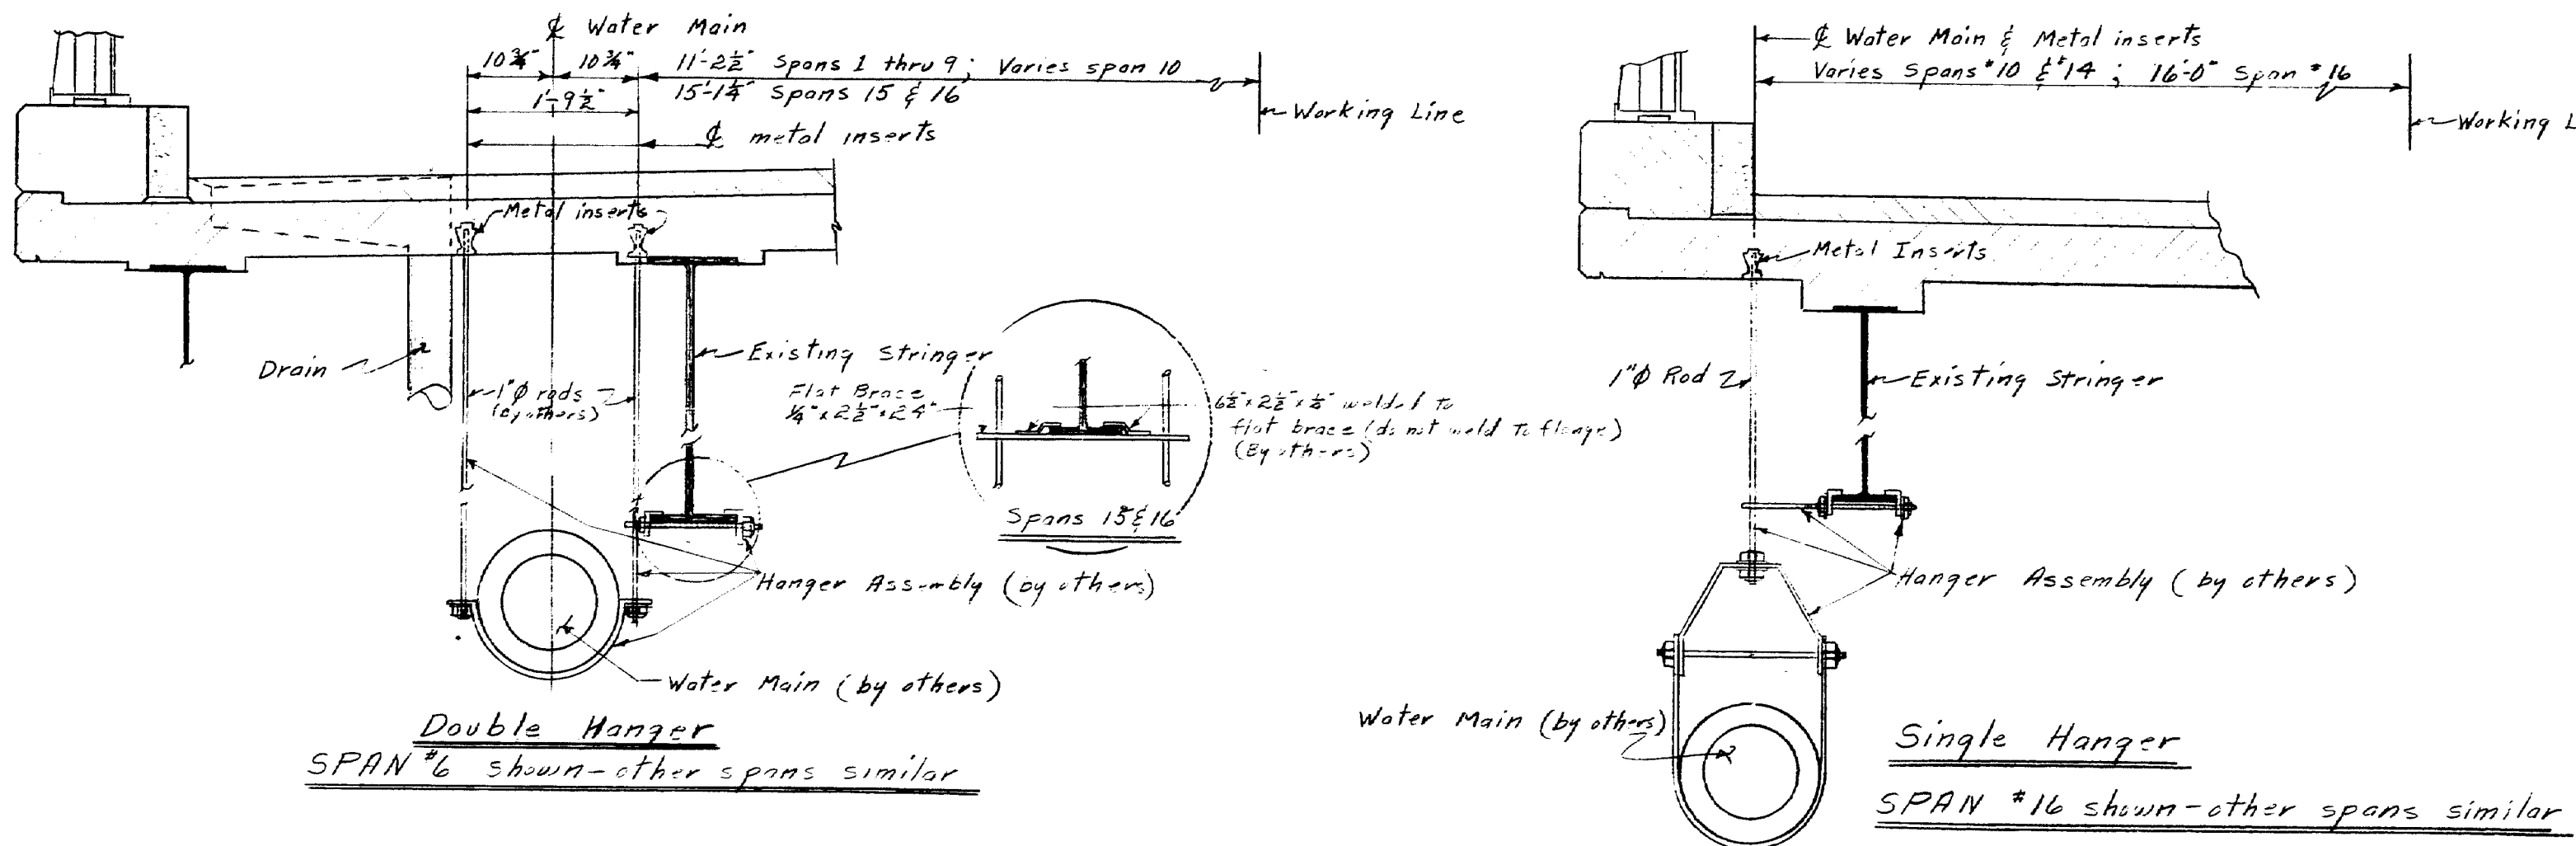 ℄ Water Main
10¾" 10¾" 11'-2½" Spans 1 thru 9; Varies span 10
1'-9½" 15'-1¼" Spans 15 & 16
Working Line
℄ metal inserts
Metal inserts
Drain
Existing Stringer
1"Ø rods
(by others)
Flat Brace
¼" x 2½" x 24"
6½" x 2½" x ½" welded to
flat brace (do not weld to flange)
(By others)
Spans 15 & 16
Hanger Assembly (by others)
Water Main (by others)
Double Hanger
SPAN #6 shown-other spans similar
℄ Water Main & Metal inserts
Varies Spans #10 & #14; 16'-0" Span #16
Working L
Metal Inserts
1"Ø Rod
Existing Stringer
Hanger Assembly (by others)
Water Main (by others)
Single Hanger
SPAN #16 shown-other spans similar